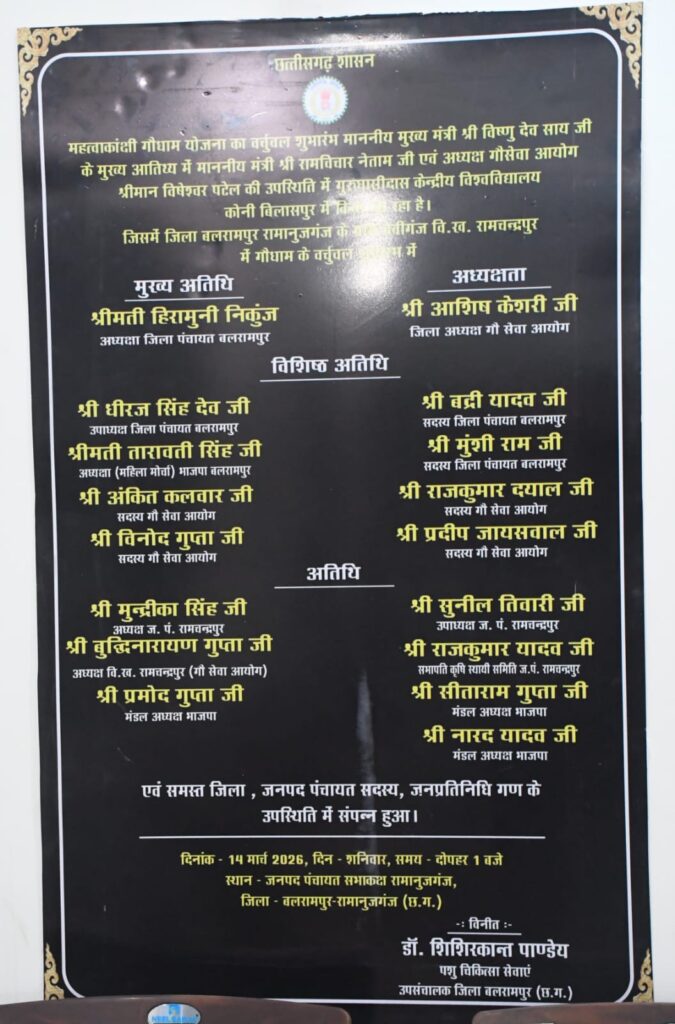 छत्तीसगढ़ शासन
महत्वाकांक्षी गौधाम योजना का वर्चुवल शुभारंभ माननीय मुख्य मंत्री श्री विष्णु देव साय जी
के मुख्य आतिथ्य में माननीय मंत्री श्री रामविचार नेताम जी एवं अध्यक्ष गौसेवा आयोग
श्रीमान विषेश्वर पटेल की उपस्थिति में गुरुघासीदास केन्द्रीय विश्वविद्यालय
कोनी बिलासपुर में रहा है।
जिसमें जिला बलरामपुर रामानुजगंज के वि.ख. रामचन्द्रपुर
में गौधाम के वर्चुवल में
मुख्य अतिथि
श्रीमती हिरामुनी निकुंज
अध्यक्षा जिला पंचायत बलरामपुर
अध्यक्षता
श्री आशिष केशरी जी
जिला अध्यक्ष गौ सेवा आयोग
विशिष्ठ अतिथि
श्री धीरज सिंह देव जी
उपाध्यक्ष जिला पंचायत बलरामपुर
श्रीमती तारावती सिंह जी
अध्यक्षा (महिला मोर्चा) भाजपा बलरामपुर
श्री अंकित कलवार जी
सदस्य गौ सेवा आयोग
श्री विनोद गुप्ता जी
सदस्य गौ सेवा आयोग
श्री बद्री यादव जी
सदस्य जिला पंचायत बलरामपुर
श्री मुंशी राम जी
सदस्य जिला पंचायत बलरामपुर
श्री राजकुमार दयाल जी
सदस्य गौ सेवा आयोग
श्री प्रदीप जायसवाल जी
सदस्य गौ सेवा आयोग
अतिथि
श्री मुन्द्रीका सिंह जी
अध्यक्ष ज. पं. रामचन्द्रपुर
श्री बुद्धिनारायण गुप्ता जी
अध्यक्ष वि.ख. रामचन्द्रपुर (गौ सेवा आयोग)
श्री प्रमोद गुप्ता जी
मंडल अध्यक्ष भाजपा
श्री सुनील तिवारी जी
उपाध्यक्ष ज. पं. रामचन्द्रपुर
श्री राजकुमार यादव जी
सभापति कृषि स्थायी समिति ज.पं. रामचन्द्रपुर
श्री सीताराम गुप्ता जी
मंडल अध्यक्ष भाजपा
श्री नारद यादव जी
मंडल अध्यक्ष भाजपा
एवं समस्त जिला , जनपद पंचायत सदस्य, जनप्रतिनिधि गण के
उपस्थिति में संपन्न हुआ।
दिनांक - 14 मार्च 2026, दिन - शनिवार, समय - दोपहर 1 बजे
स्थान - जनपद पंचायत सभाकक्ष रामानुजगंज,
जिला - बलरामपुर-रामानुजगंज (छ.ग.)
-: विनीत :-
डॉ. शिशिरकान्त पाण्डेय
पशु चिकित्सा सेवाएं
उपसंचालक जिला बलरामपुर (छ.ग.)